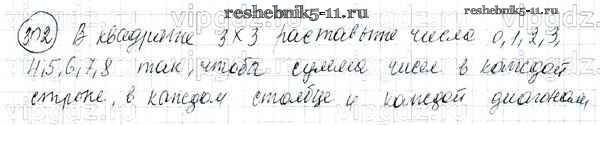 reshebnik5-11.ru
302 В квадрате 3×3 расставьте числа 0,1,2,3,
4,5,6,7,8 так, чтобы сумма чисел в каждой
строке, в каждом столбце и каждой диагонали
reshebnik5-11.ru